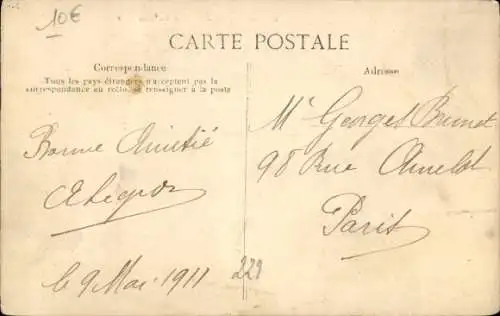 10€
CARTE POSTALE
Correspondance
Tous les pays étrangers n'acceptent pas la
correspondance au recto, se renseigner à la poste
Adresse
Bonne Amitié
le 9 Mai 1911
Mr Georges Brunot
98 Rue Amelot
Paris
229